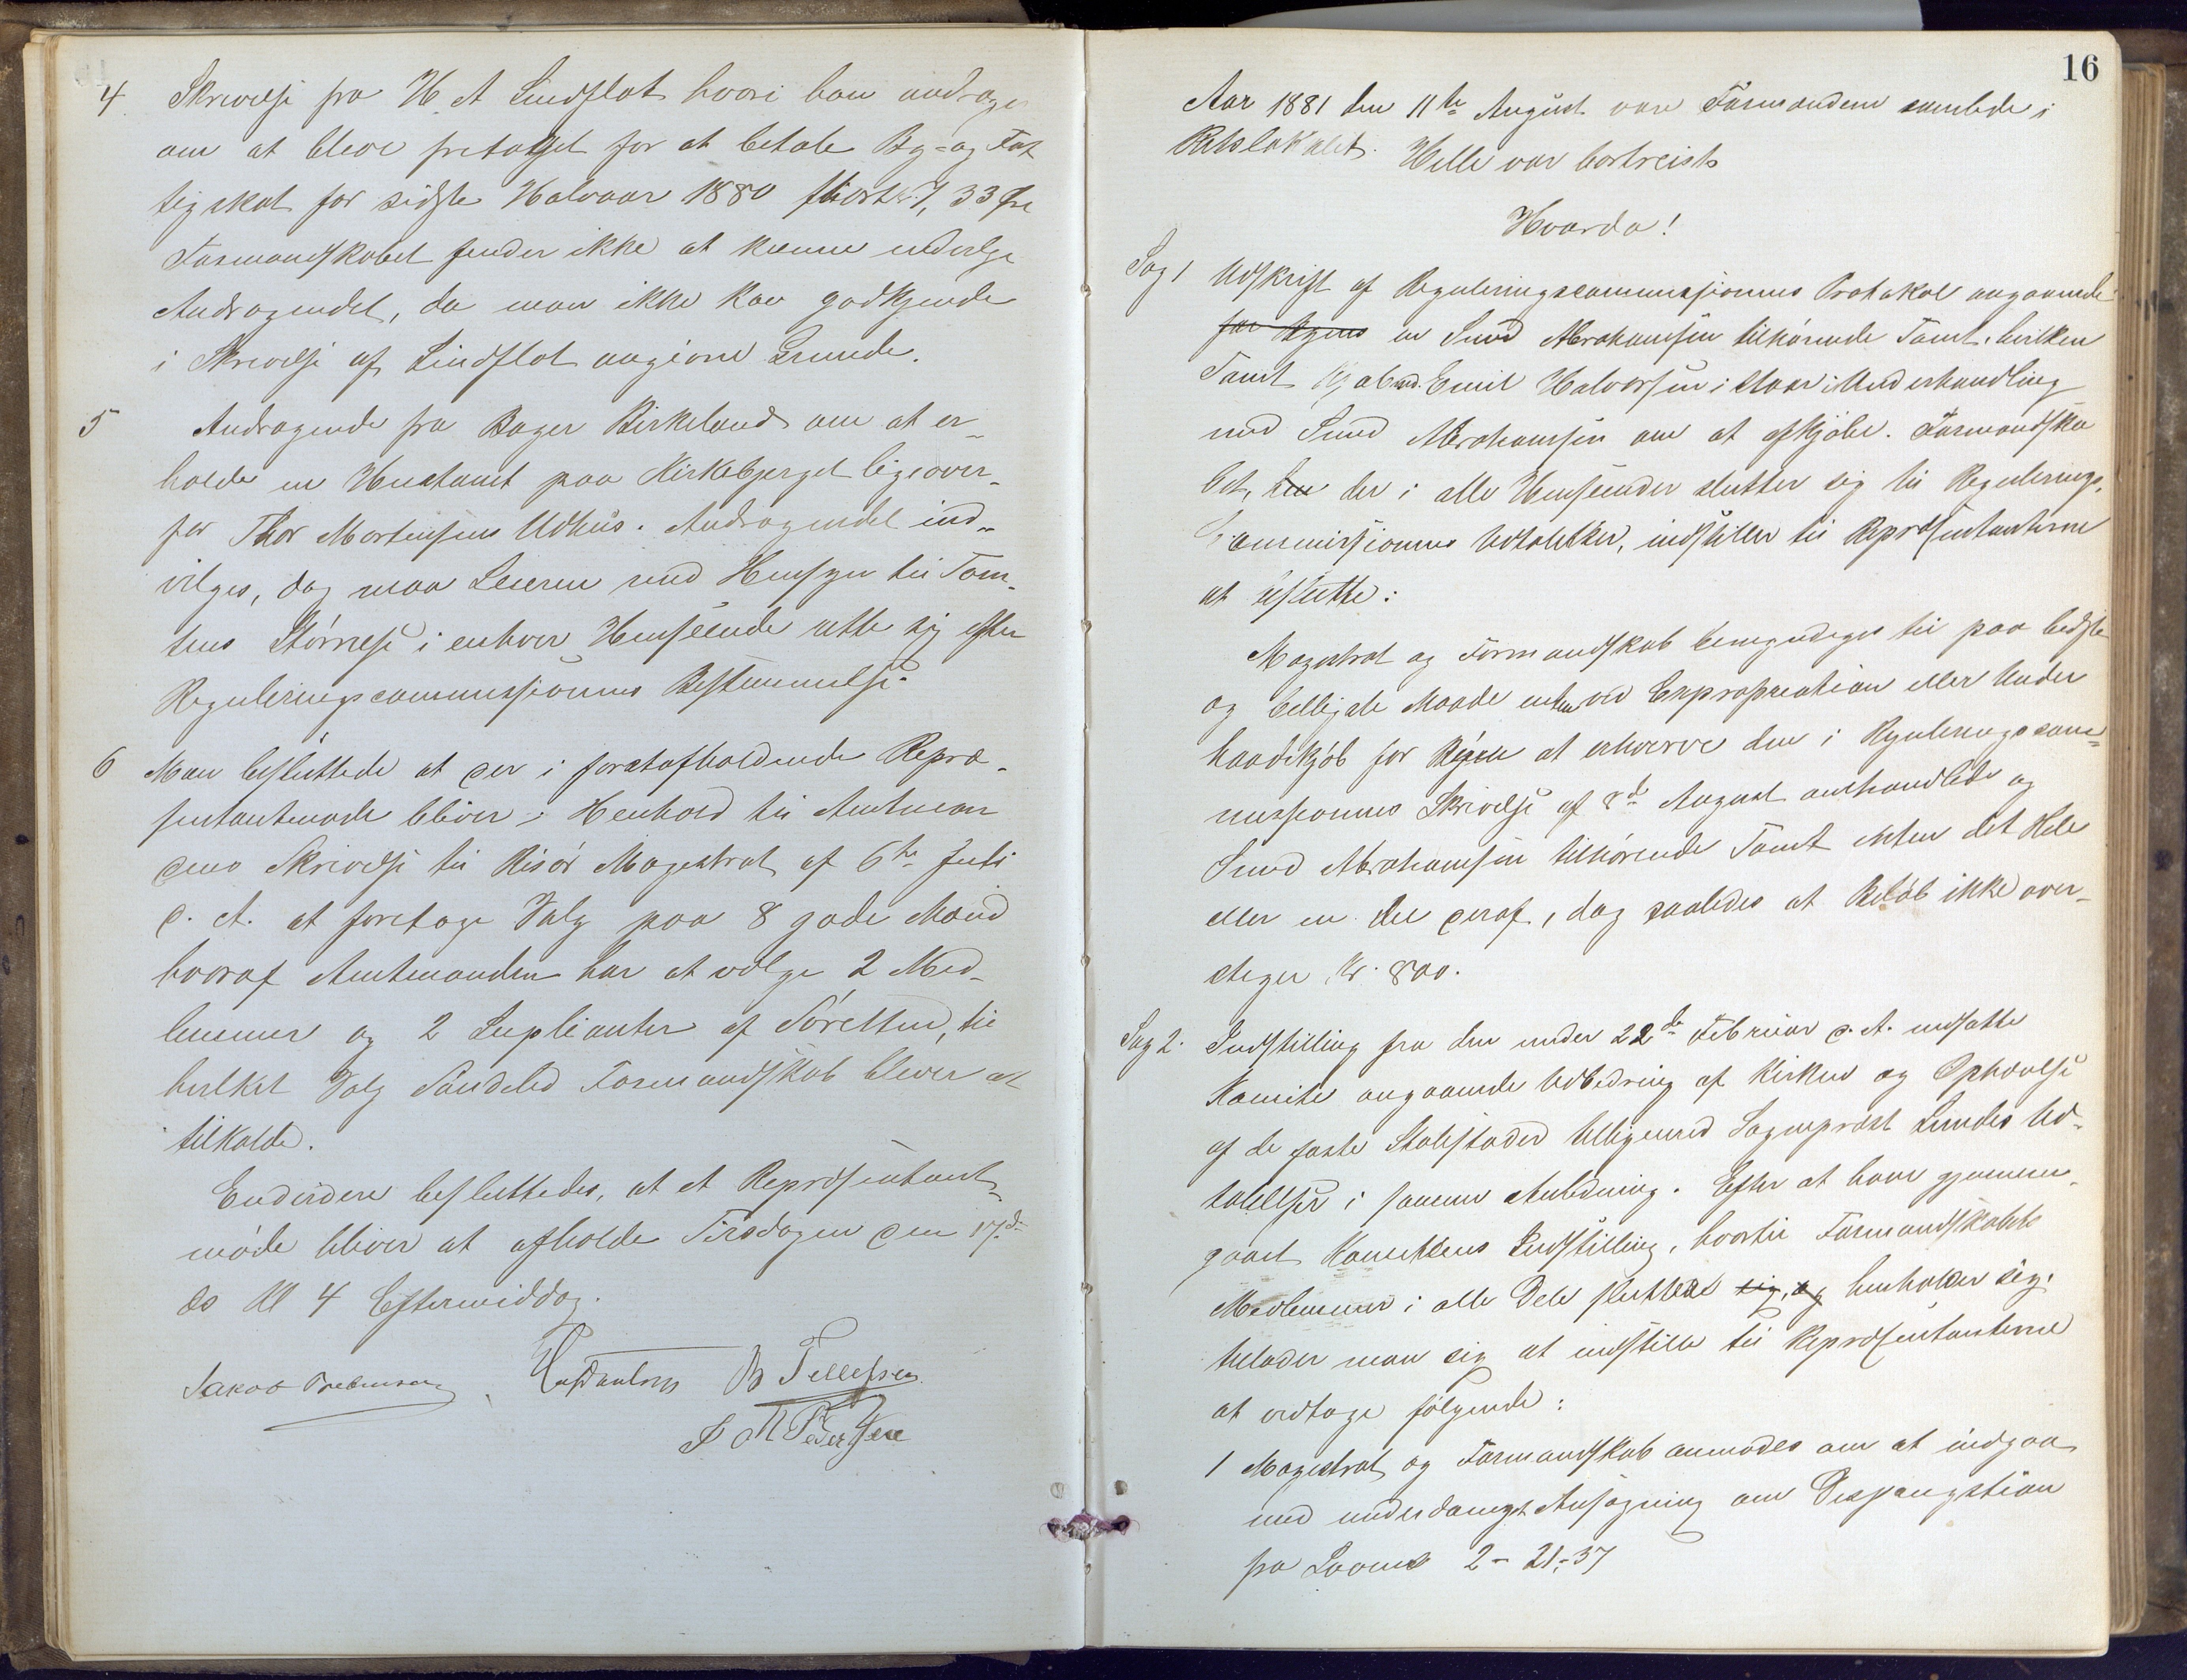 4 Skrivelse fra H A Lindflot hvori han andrager
om at blive fritaget for at betale By- og Fat
tigskat for sidste Halvaar 1880 7,33 Øre
Formandskabet finder ikke at kunne indvilge
Andragendet, da man ikke kan godkjende
i Skrivelse af Lindflot angivne Grunde.
5 Andragende fra Bager Birkeland om at er-
holde en Hustomt paa Kirkebjerget ligeover-
for Thor Mortensens Udhus. Andragendet ind-
vilges, dog maa Leieren med Hensyn til Tom-
tens Størrelse i enhver Henseende rette sig efter
Reguleringscommissionens Bestemmelse.
6 Man besluttede at der i førstafholdende Repræ-
sentantmøde bliver i Henhold til Amtman
dens Skrivelse til Risør Magistrat af 6te Juli
d. A. at foretage Valg paa 8 gode Mænd
hvoraf Amtmanden har at vælge 2 Med-
lemmer og 2 Suplianter af Søretten, til
hvilket Valg Søndeled Formandskab bliver at
tilkalde.
Endvidere besluttedes, at et Repræsentant-
møde bliver at afholde Tirsdagen den 17de
ds Kl 4 Eftermiddag.
Jakob Prebensen B Tellefsen
J M Pedersen
16
Aar 1881 den 11te August vare Formændene samlede i
Retslokalet. Helle var bortreist
Hvorda!
Sag 1 Udskrift af Reguleringscommissionens Protokol angaaende
for Byens en Svend Abrahamsen tilhørende Tomt, hvilken
Tomt Emil Halvorsen i staar i Underhandling
med Svend Abrahamsen om at afkjøbe. Formandska
bet, der i alle Henseender slutter sig til Regulerings-
Commissionens Udtalelser, indstiller til Repræsentanterne
at beslutte:
Magistrat og Formandskab bemyndiges til paa bedste
og billigste Maade enten ved Expropriation eller Under
haandskjøb for Byen at erhverve den i Reguleringscom-
missionens Skrivelse af 8de August omhandlede og
Svend Abrahamsen tilhørende Tomt enten det Hele
eller en del deraf, dog saaledes at Beløb ikke over-
stiger Kr. 800.
Sag 2. Indstilling fra den under 22de Februar d. A. nedsatte
Komite angaaende Udbedring af Kirken og Ophævelse
af de faste Stolestader tilligemed Sogneprest Lundes Ud-
talelser i samme Anledning. Efter at have gjennem-
gaaet Komiteens Indstilling, hvortil Formandskabets
Medlemmer i alle Dele sluttede sig, og henholder sig,
tillader man sig at indstille til Repræsentanterne
at vedtage følgende:
1 Magistrat og Formandskab anmodes om at indgaa
med underdanigst Ansøgning om Dispensation
fra Lovens 2 - 21-37